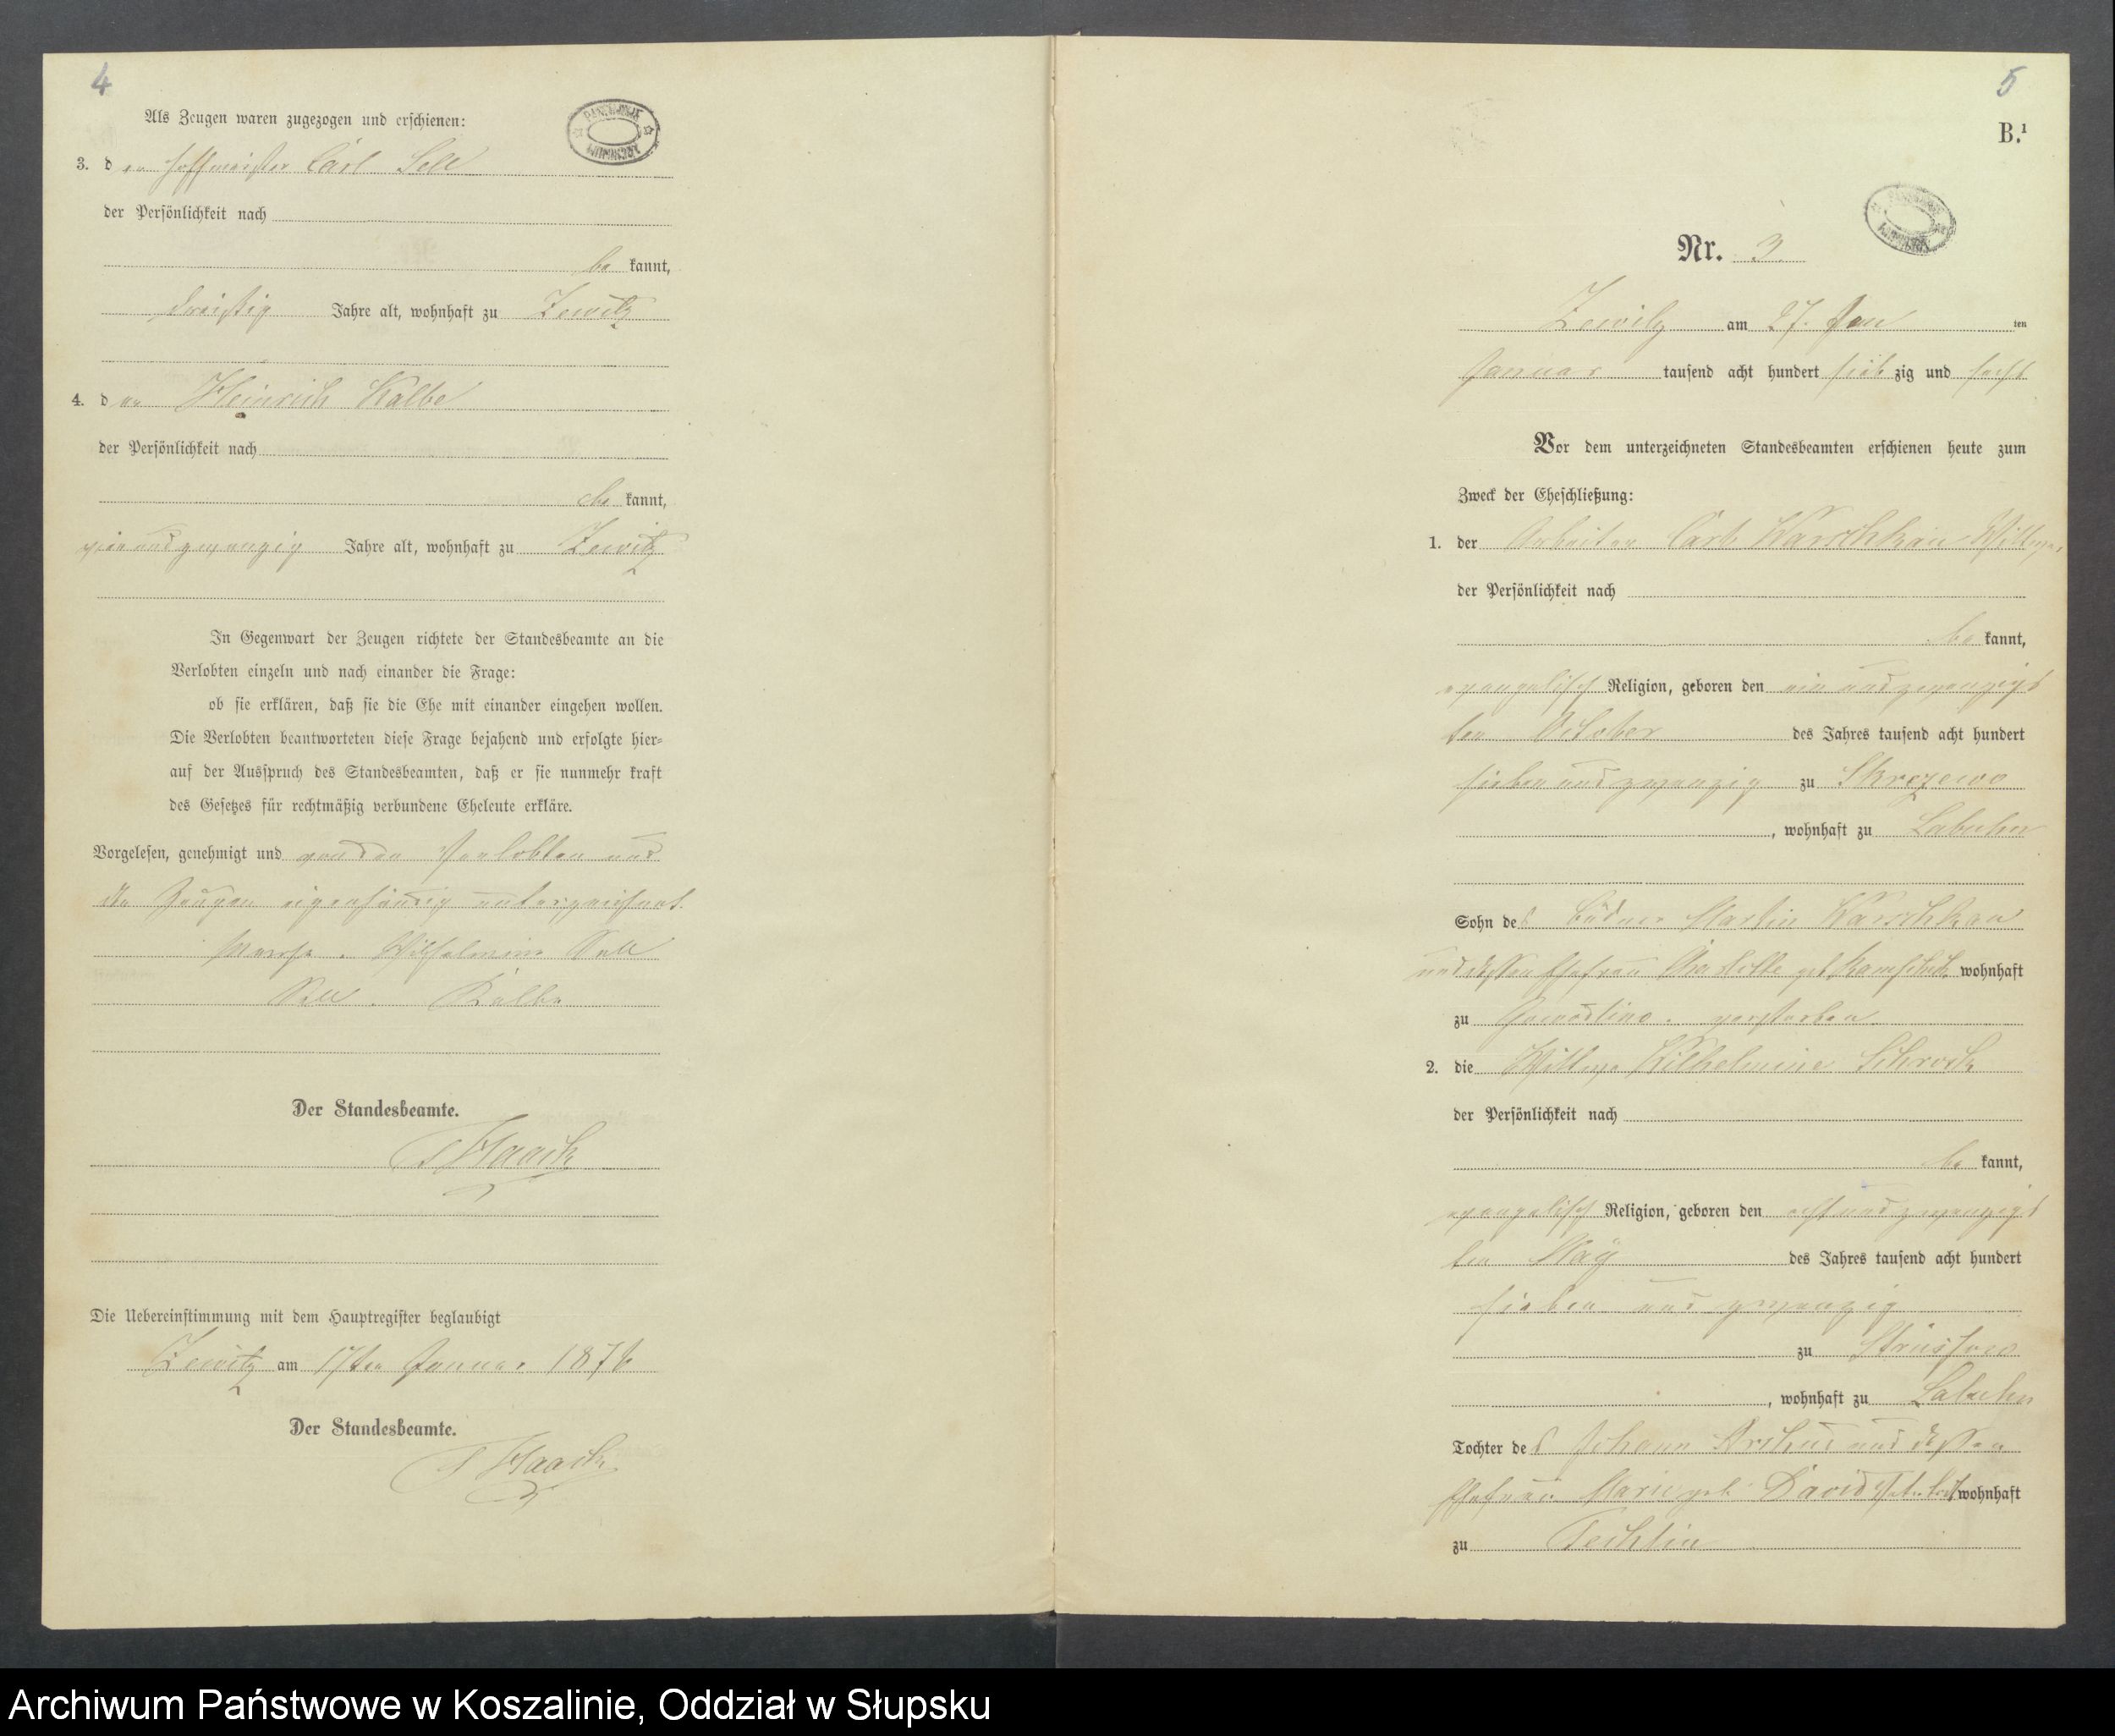 4
Als Zeugen waren zugezogen und erschienen:
3. der Hoffmeister Carl Sell
der Persönlichkeit nach
be kannt,
dreißig Jahre alt, wohnhaft zu Zewitz
4. der Heinrich Kalbe
der Persönlichkeit nach
be kannt,
vierundzwanzig Jahre alt, wohnhaft zu Zewitz
In Gegenwart der Zeugen richtete der Standesbeamte an die
Verlobten einzeln und nach einander die Frage:
ob sie erklären, daß sie die Ehe mit einander eingehen wollen.
Die Verlobten beantworteten diese Frage bejahend und erfolgte hier-
auf der Ausspruch des Standesbeamten, daß er sie nunmehr kraft
des Gesetzes für rechtmäßig verbundene Eheleute erkläre.
Vorgelesen, genehmigt und von den Verlobten und
den Zeugen eigenhändig unterzeichnet.
Wilhelmine Sell
Sell. Kalbe
Der Standesbeamte.
Haack
Die Uebereinstimmung mit dem Hauptregister beglaubigt
Zewitz am 17ten Januar 1876
Der Standesbeamte.
Haack
5
B.¹
Nr. 3.
Zewitz am 27. ten
Januar tausend acht hundert sieb zig und sechs
Vor dem unterzeichneten Standesbeamten erschienen heute zum
Zweck der Eheschließung:
1. der Arbeiter Carl Karschkau Wittwer
der Persönlichkeit nach
be kannt,
evangelisch Religion, geboren den ein und zwanzigs
ten October des Jahres tausend acht hundert
sieben und zwanzig zu
, wohnhaft zu Labuhn
Sohn des Büdner Martin Karschkau
und dessen Ehefrau geb. wohnhaft
zu verstorben.
2. die Wittwe Wilhelmine Schrock
der Persönlichkeit nach
be kannt,
evangelisch Religion, geboren den acht und zwanzigs
ten May des Jahres tausend acht hundert
sieben und zwanzig
zu
, wohnhaft zu Labuhn
Tochter des Johann und dessen
Ehefrau Marie geb. David wohnhaft
zu
Archiwum Państwowe w Koszalinie, Oddział w Słupsku